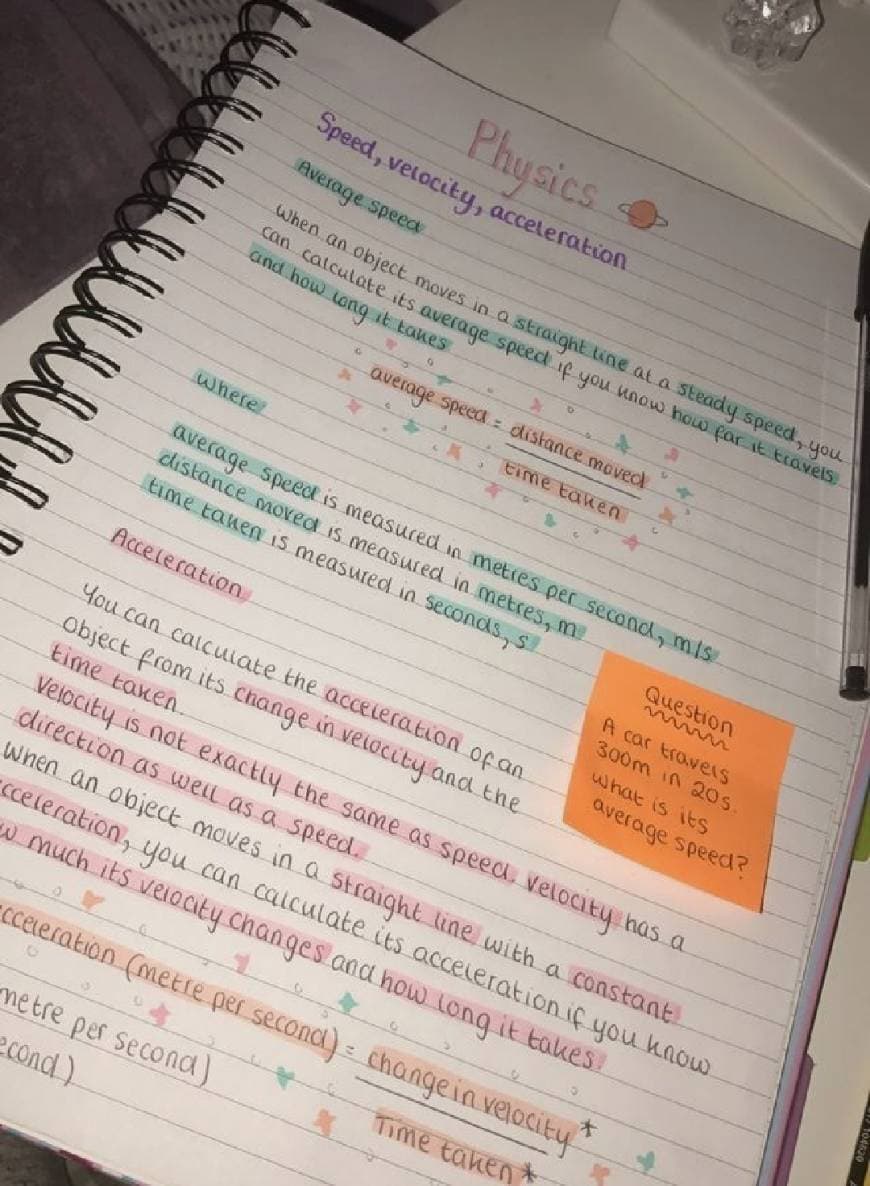 Physics
Speed, velocity, acceleration
Average speed
When an object moves in a straight line at a steady speed, you
can calculate its average speed if you know how far it travels
and how long it takes
average speed = distance moved
time taken
where
average speed is measured in metres per second, m/s
distance moved is measured in metres, m
time taken is measured in seconds, s
Acceleration
You can calculate the acceleration of an
object from its change in velocity and the
time taken.
Velocity is not exactly the same as speed. Velocity has a
direction as well as a speed.
When an object moves in a straight line with a constant
cceleration, you can calculate its acceleration if you know
w much its velocity changes and how long it takes.
cceleration (metre per second) = change in velocity*
Time taken*
metre per second)
econd)
Question
A car travels
300m in 20s.
What is its
average speed?